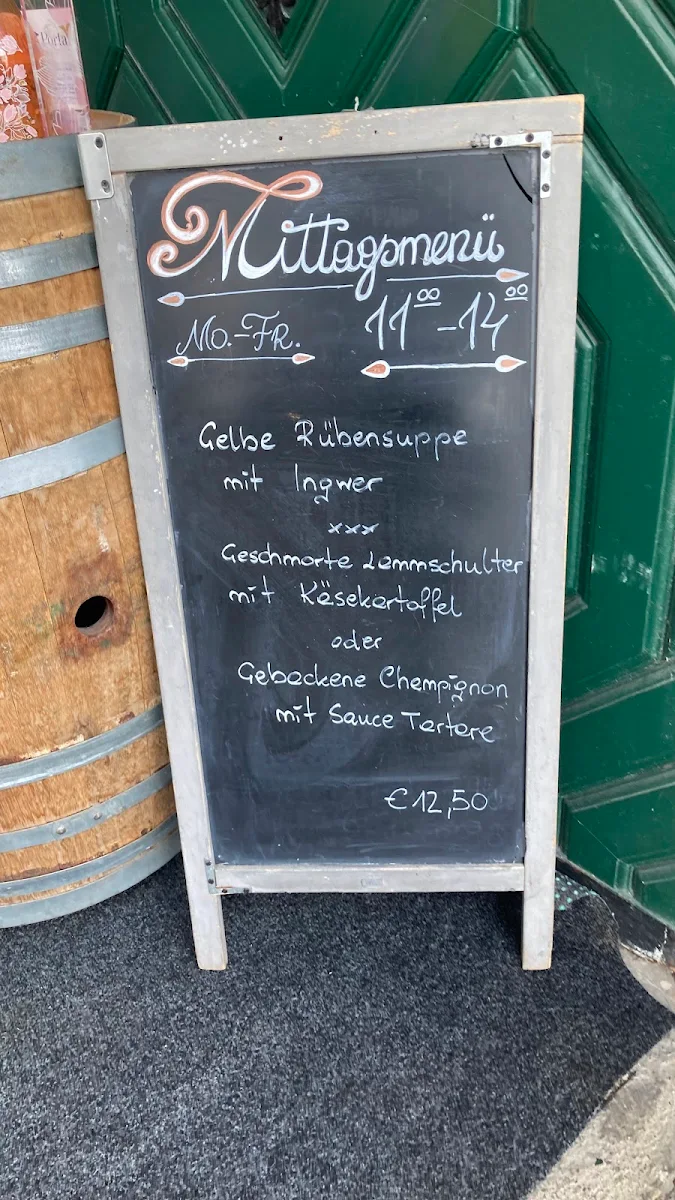 Porta
Mittagsmenü
Mo.-Fr. 11⁰⁰-14⁰⁰
Gelbe Rübensuppe
mit Ingwer
xxx
Geschmorte Lammschulter
mit Käsekartoffel
oder
Gebackene Champignon
mit Sauce Tartare
€12,50